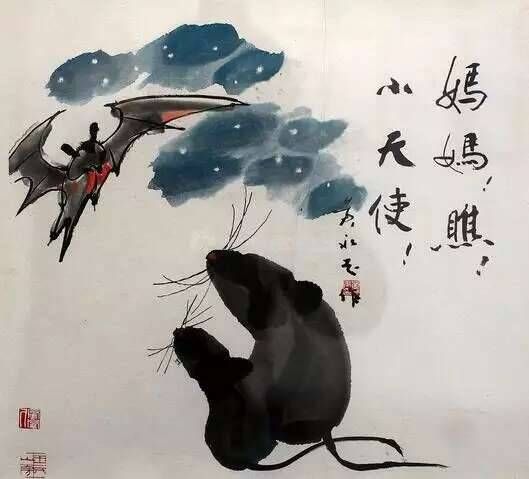 媽媽！瞧！
小天使！
黄永玉作